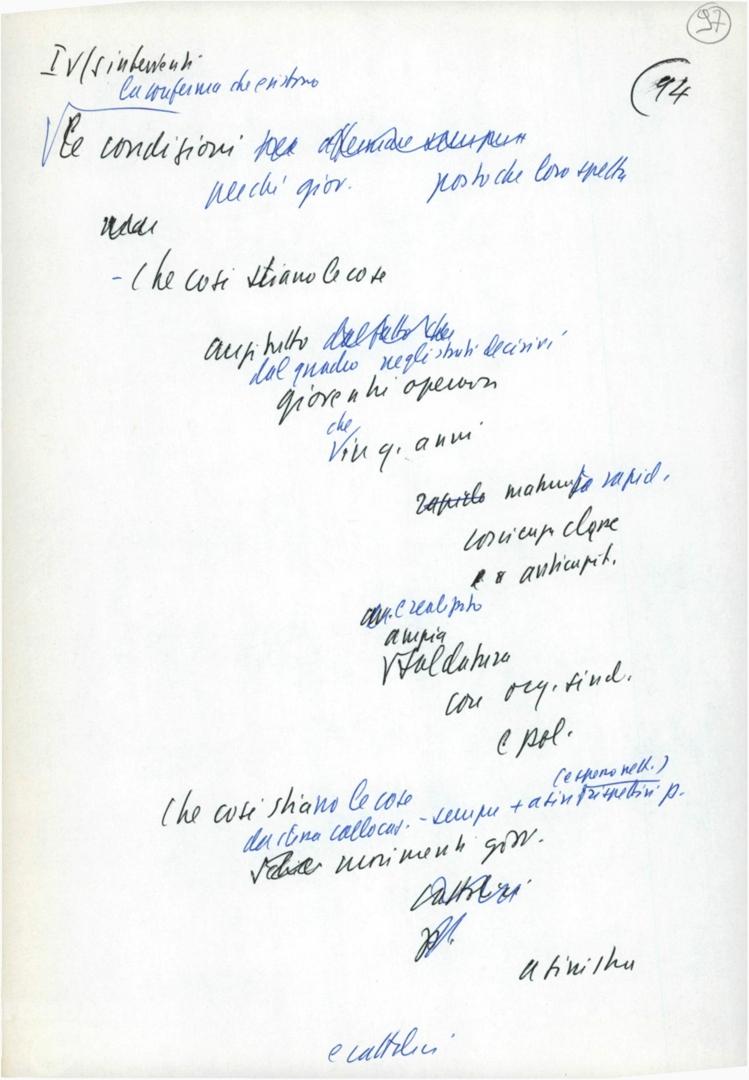 97
IV/5 interventi
la conferma che esistono
94
Le condizioni per
perché giov. posto che loro spetta
- Che così stiano le cose
anzitutto dal fatto che
dal quadro negli strati decisivi
gioventù operaia
che
in q. anni
rapida maturata rapid.
coscienza classe
e anticapit.
realizzato
ampia
saldatura
con org. sind.
e pol.
Che così stiano le cose
(e spero nell.)
collocaz. - sempre + a sin rispettivi p.
movimenti giov.
cattolici
a sinistra
e cattolici